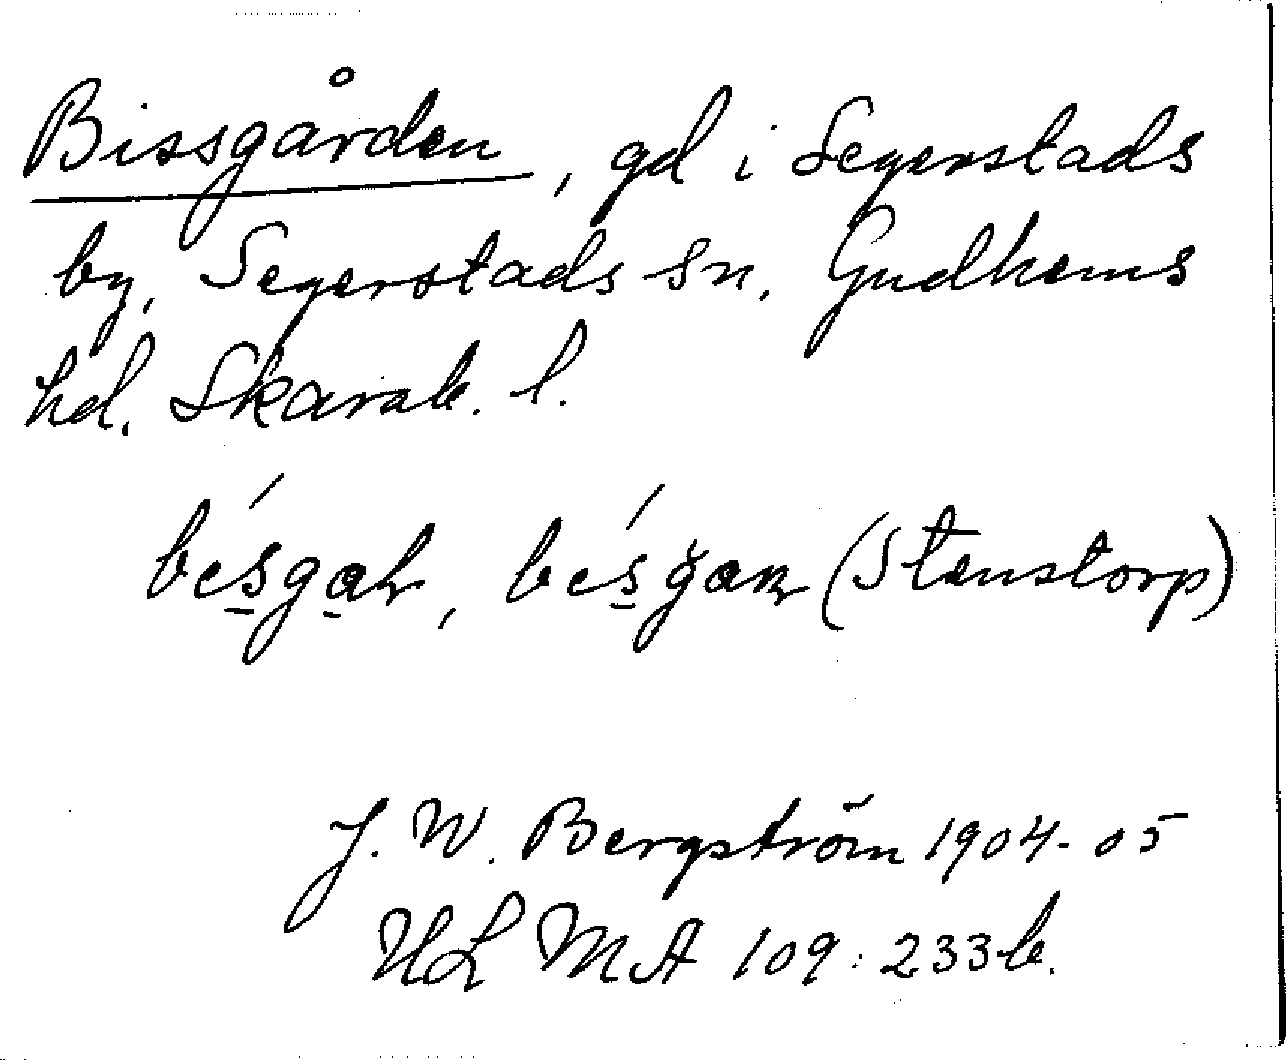 Bissgården, gd i Segerstads
by, Segerstads sn, Gudhems
hd. Skarab. l.
(Stenstorp)
J. W. Bergström 1904-05
ULMA 109:233b.